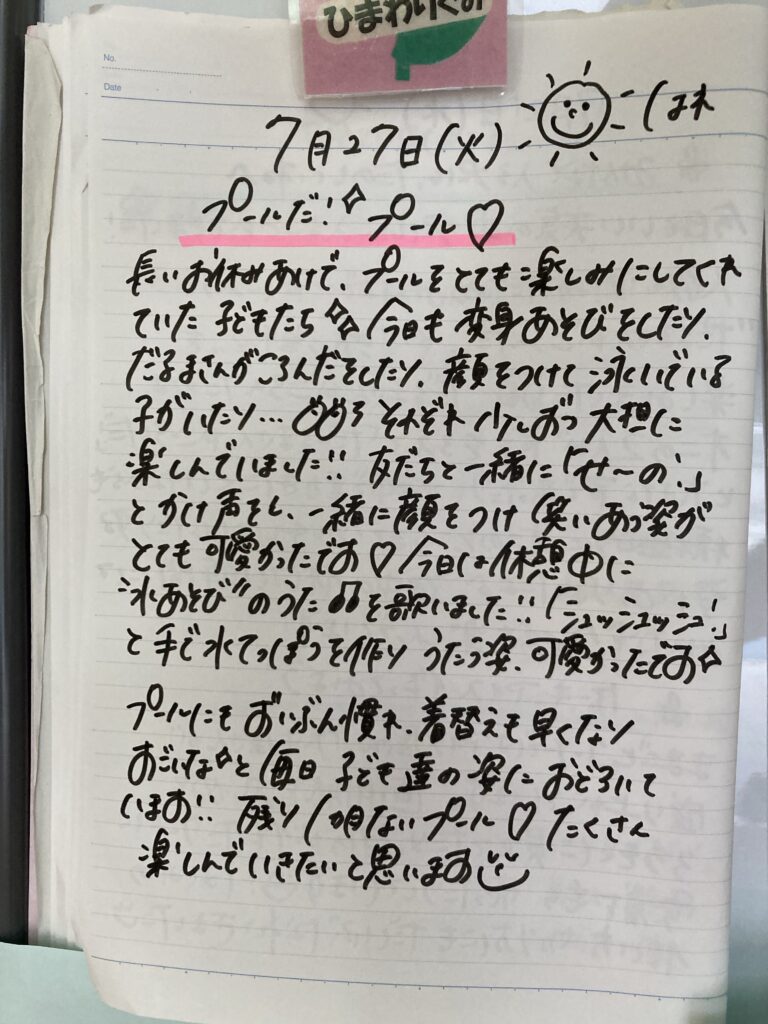 ひまわりぐみ
No.
Date
7月27日(火) はれ
プールだ!プール♡
長いお休みあけで、プールをとても楽しみにしてくれ
ていた子どもたち 今日も変身あそびをしたり、
だるまさんがころんだをしたり、顔をつけて泳いでいる
子がいたり… それぞれ少しずつ大胆に
楽しんでいました!! 友だちと一緒に「せ〜の!」
とかけ声をし、一緒に顔をつけ笑いあう姿が
とても可愛かったです♡ 今日は休憩中に
"水あそび"のうた♫を歌いました!!「シュッシュッシュ!」
と手で水てっぽうを作りうたう姿、可愛かったです
プールにもずいぶん慣れ、着替えも早くなり
すごいなと毎日子ども達の姿におどろいて
います!! 残り1ヶ月ないプール♡たくさん
楽しんでいきたいと思います